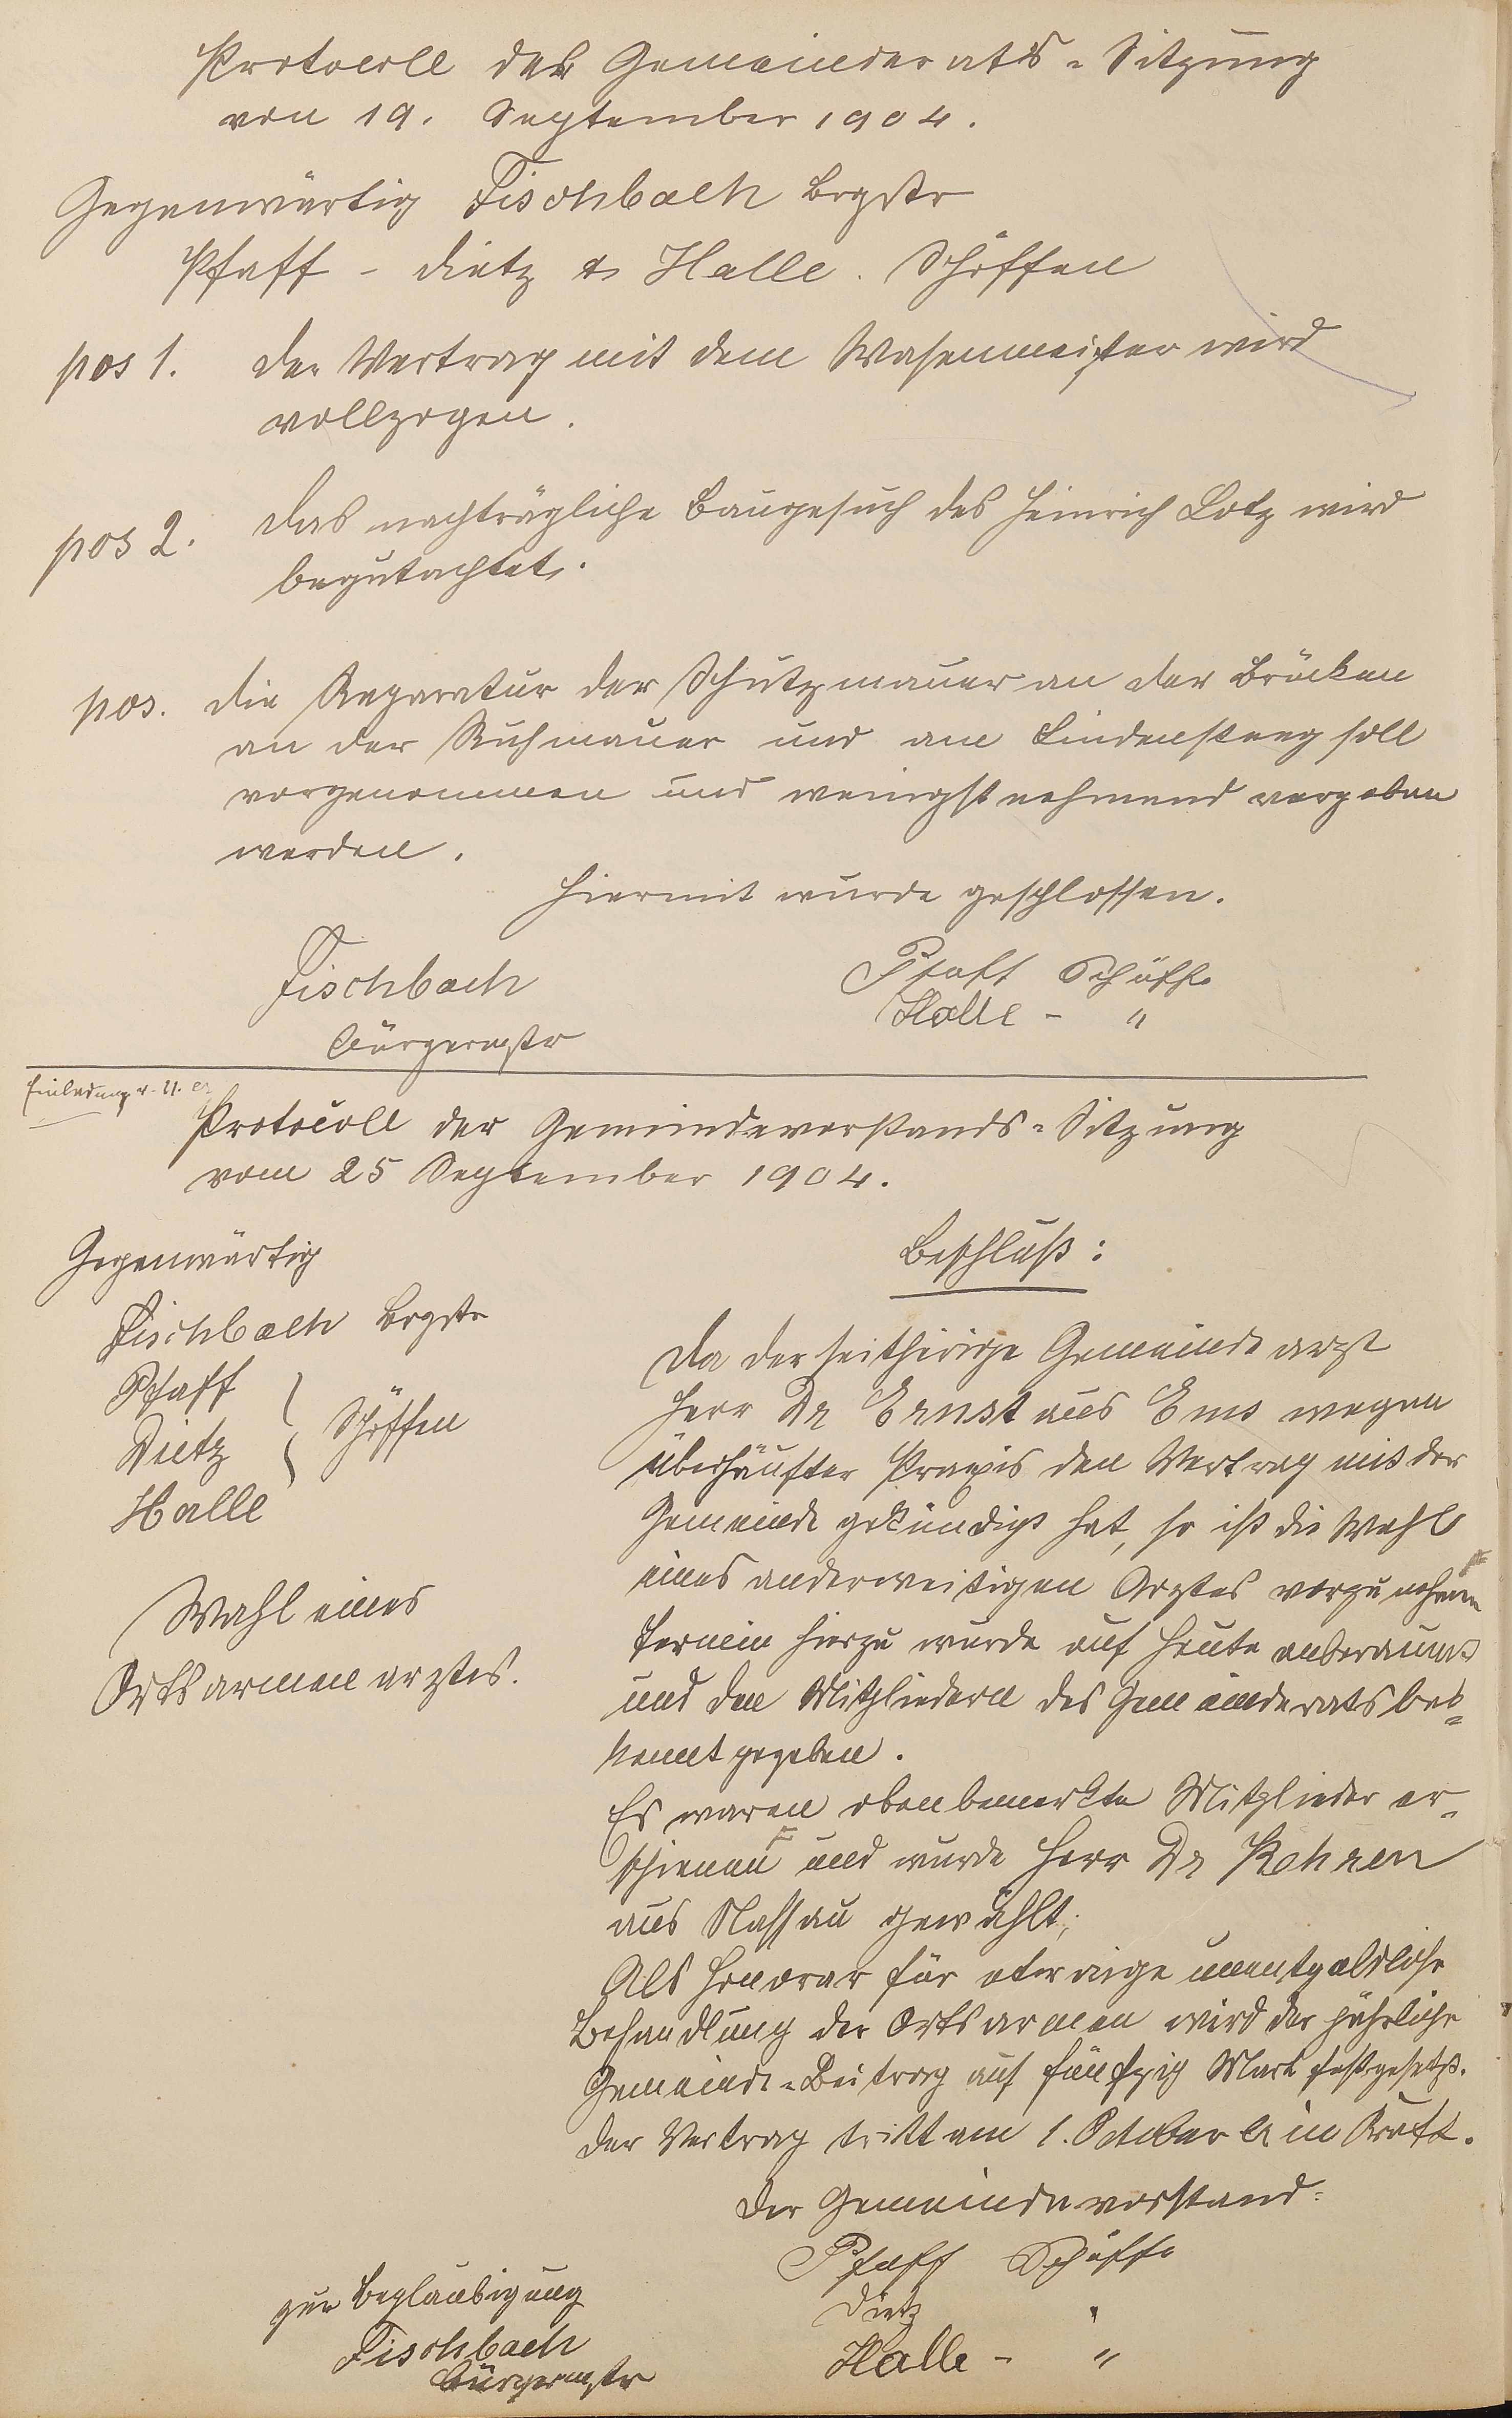 Protocoll der Gemeinderats-Sitzung
von 19. September 1904.
Gegenwärtig Fischbach Brgstr
Pfaff - Dietz & Halle. Schöffen
pos 1. Der Vertrag mit dem Wasenmeister wird
vollzogen.
pos 2. Das nachträgliche Baugesuch des Heinrich Lotz wird
begutachtet.
pos. Die Reparatur der Schutzmauer an der Brücken
an der Ruhmauer und am Lindensteeg soll
vorgenommen und wenigstnehmend vergeben
werden.
Hiermit wurde geschlossen.
Fischbach
Bürgermstr
Pfaff Schöffe
Halle - "
Einladung v. 21.
Protocoll der Gemeindevorstands-Sitzung
vom 25 September 1904.
Gegenwärtig
Fischbach Brgstr
Pfaff
Dietz
Halle
Schöffen
Wahl eines
Ortsarmenarztes.
Beschluß:
Da der seitherige Gemeindearzt
Herr Dr Ernst aus Ems wegen
überhäufter Praxis den Vertrag mit der
Gemeinde gekündigt hat, so ist die Wahl
eines anderweitigen Arztes vorzunehmen
Termin hierzu wurde auf heute anberaumt
und den Mitgliedern des Gemeinderats be-
kannt gegeben.
Es waren obenbemerkte Mitglieder er-
schienen und wurde Herr Dr
aus Nassau gewählt;
Als Honorar für unentgeldliche
Behandlung der Ortsarmen wird der jährliche
Gemeinde-Beitrag auf fünfzig Mark festgesetzt.
Der Vertrag tritt am 1. October in Kraft.
Der Gemeindevorstand:
Pfaff Schöffe
Dietz "
Halle - "
zur Beglaubigung
Fischbach
Bürgermstr